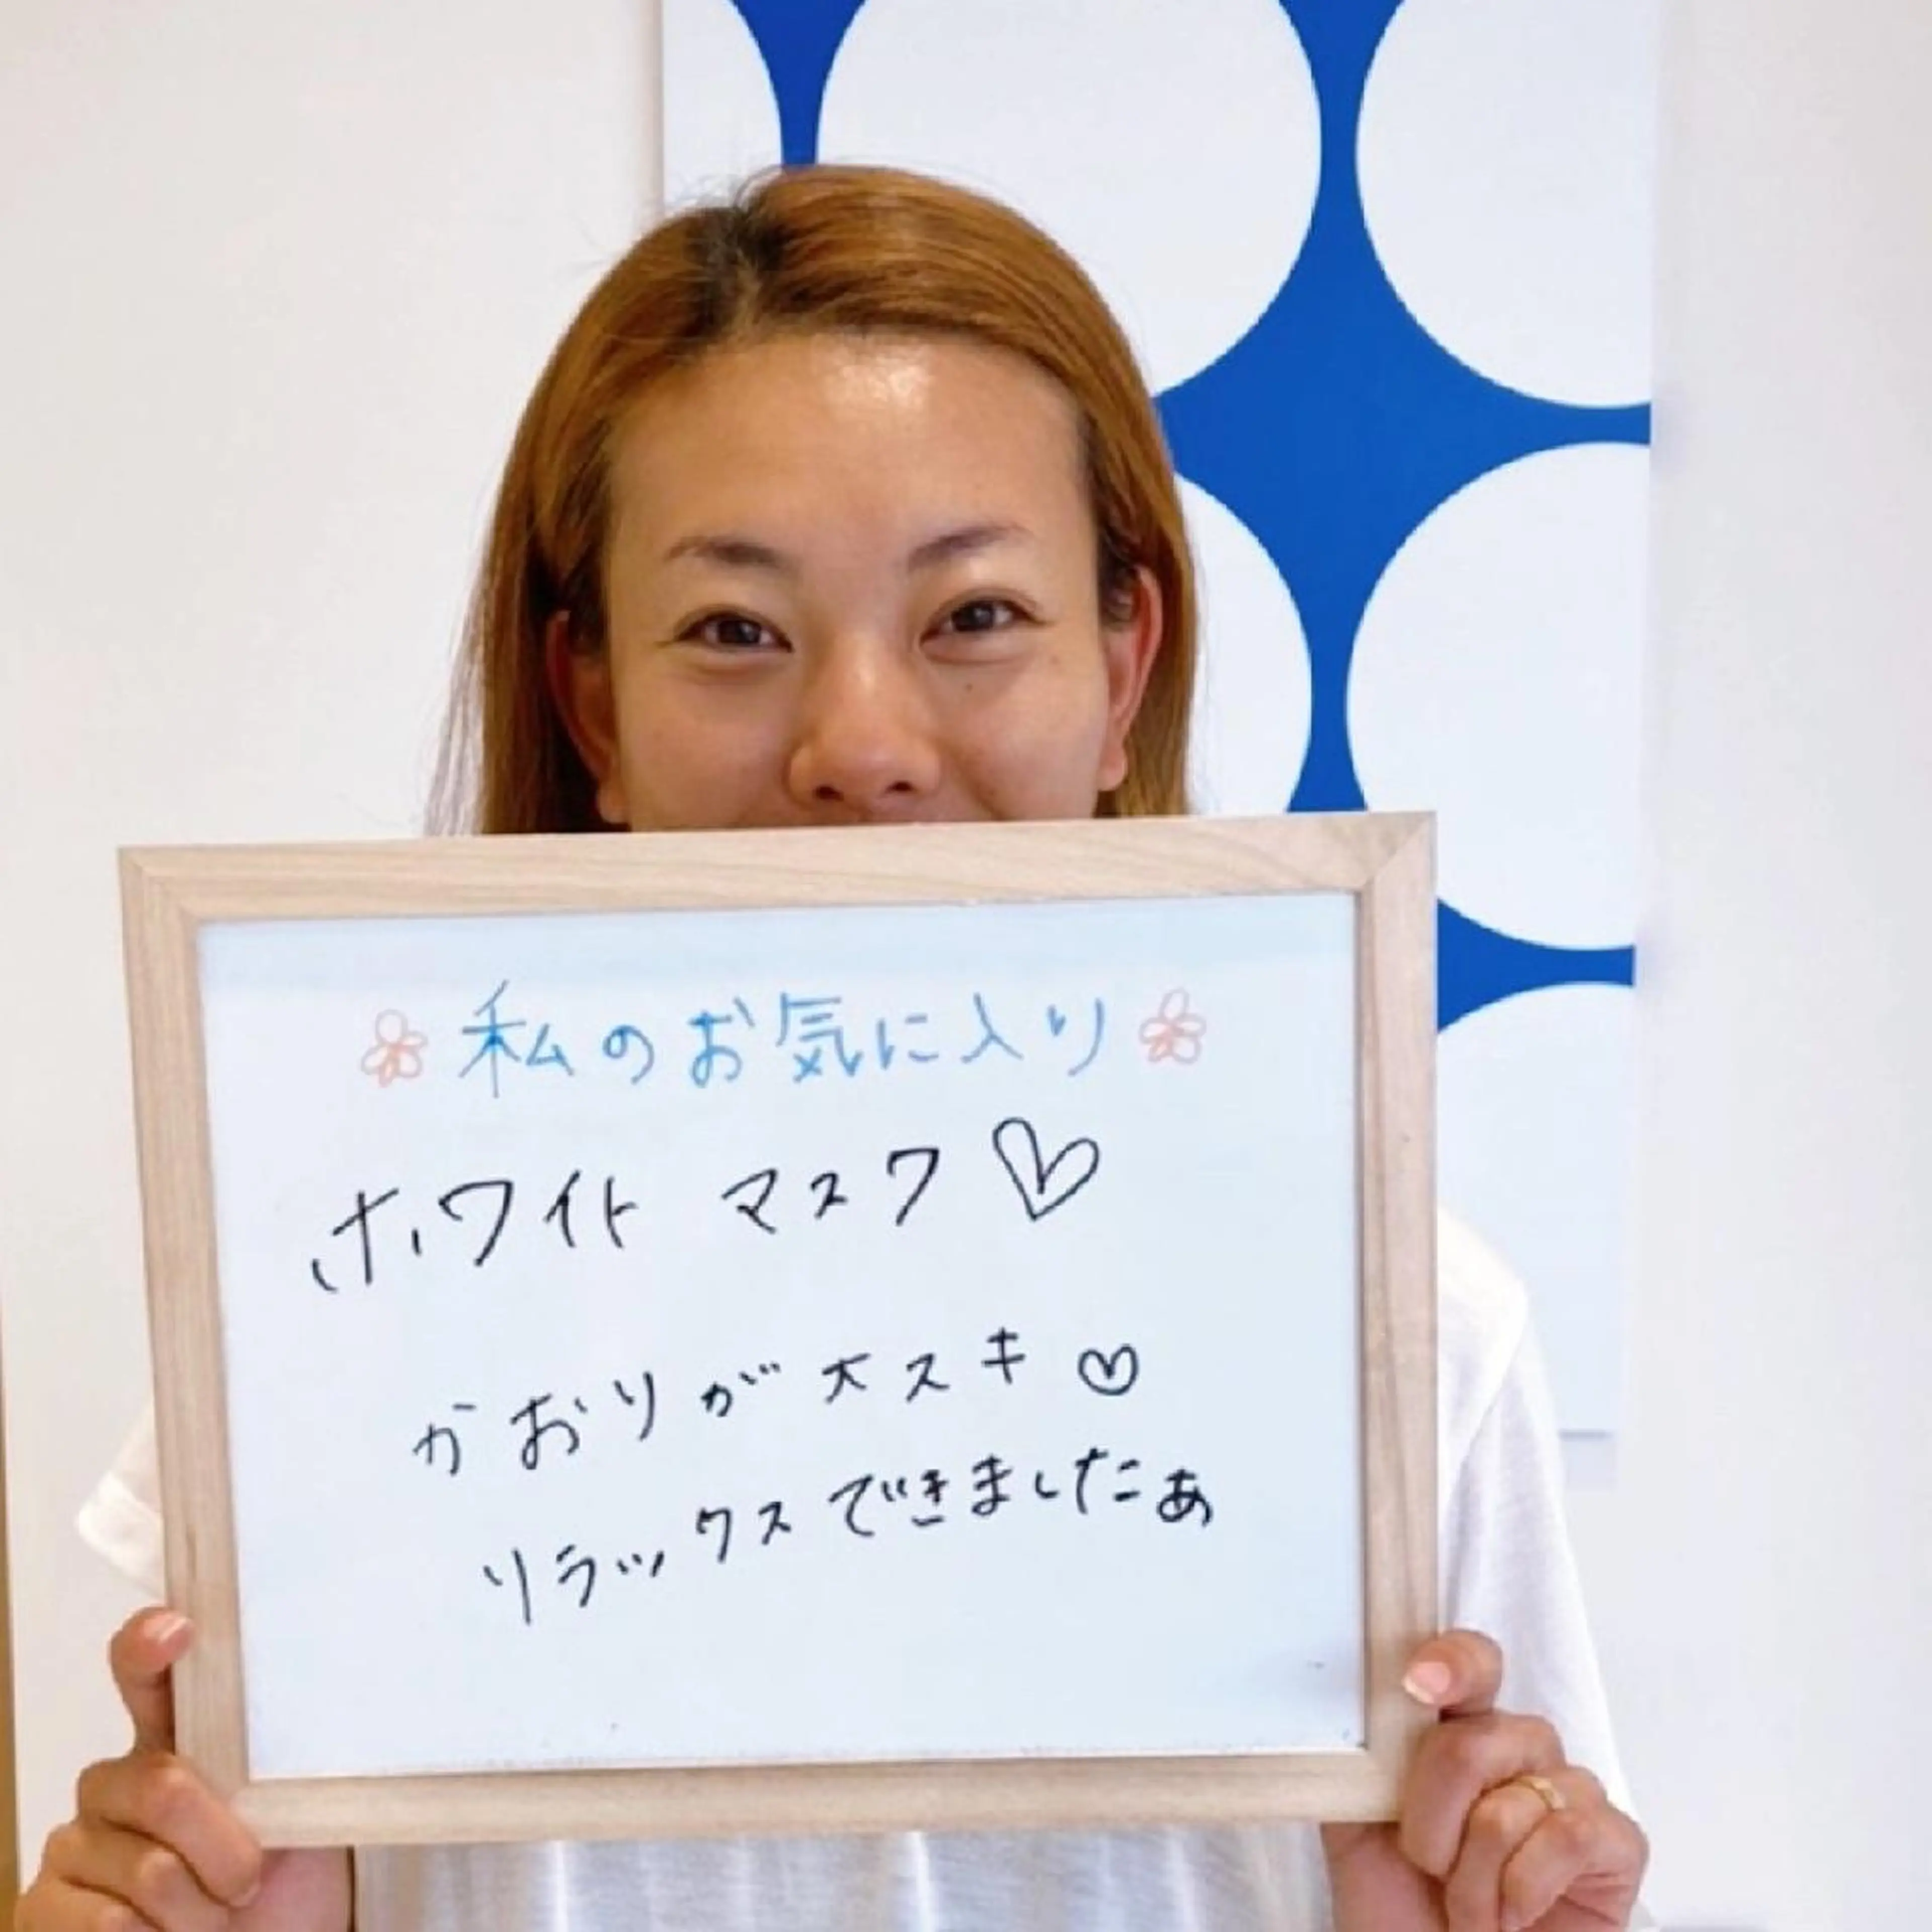 私のお気に入り
ホワイトマスク♡
かおりが大スキ♡
リラックスできましたぁ